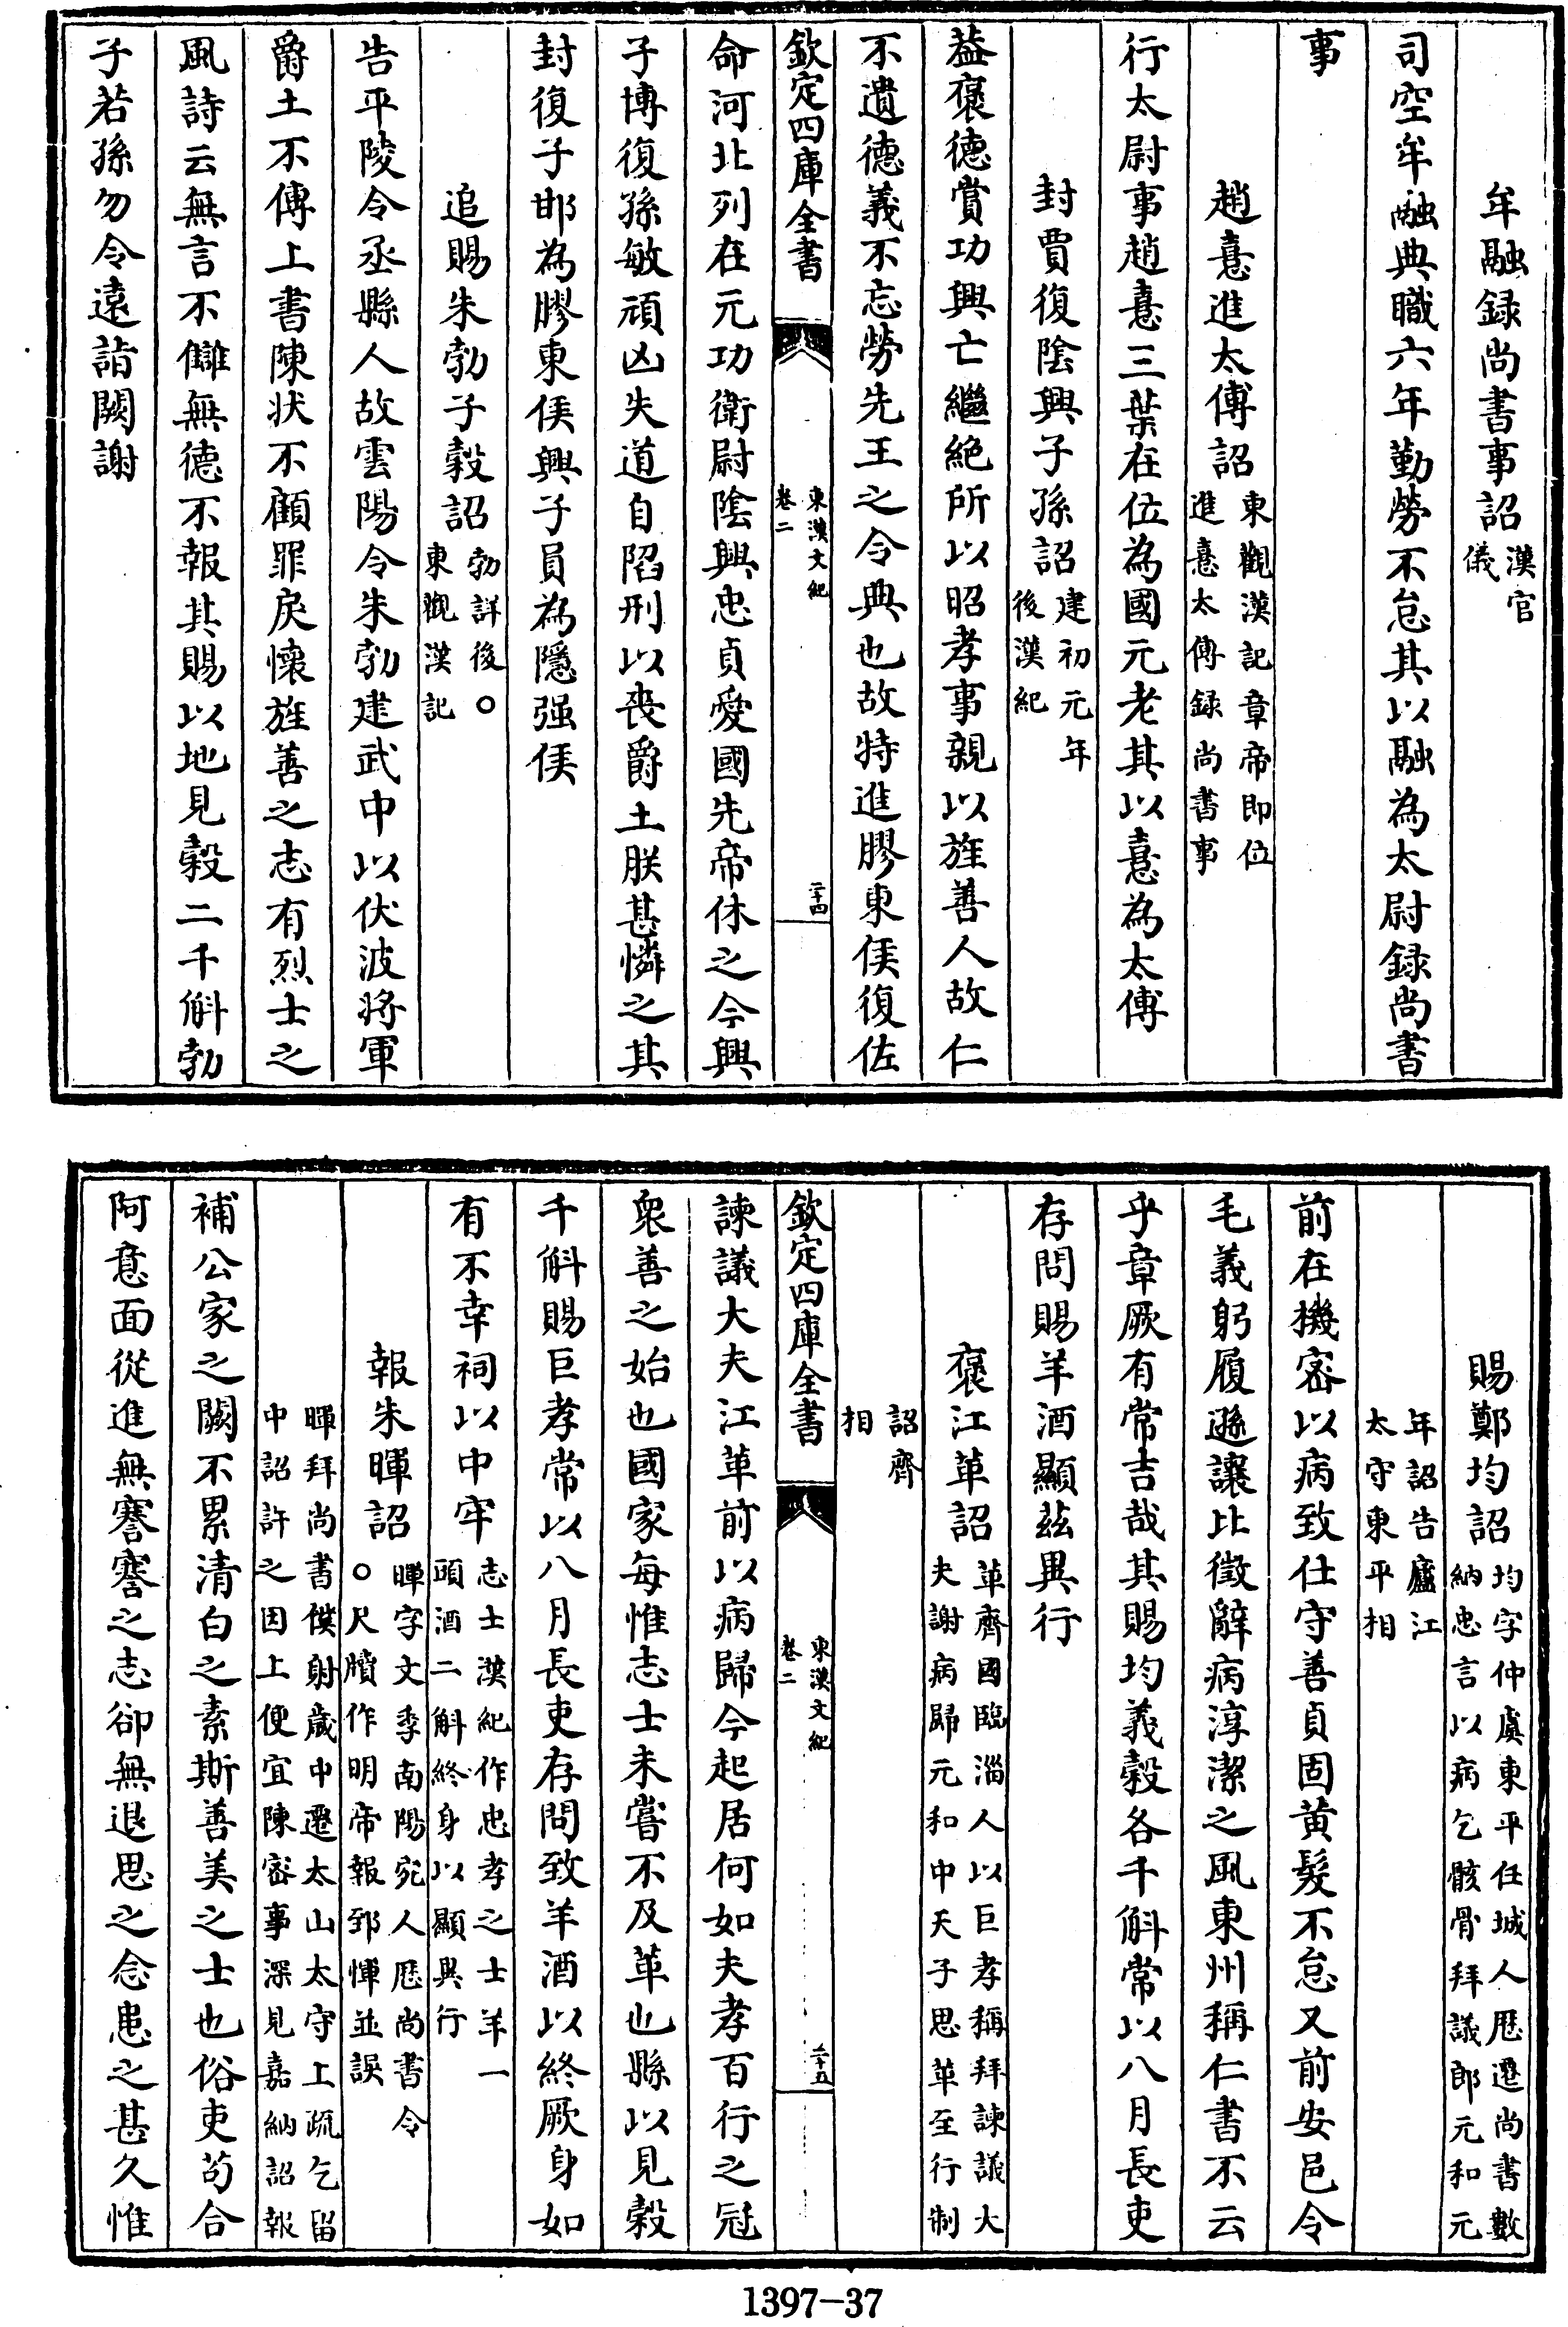 牟融録尚書事詔漢官儀
司空牟融典職六年勤勞不怠其以融為太尉録尚書
事
趙憙進太傅詔東觀漢記章帝即位進憙太傅録尚書事
行太尉事趙憙三葉在位為國元老其以憙為太傅
封賈復陰興子孫詔建初元年後漢紀
葢褒德賞功興亡繼絶所以昭孝事親以旌善人故仁
不遺德義不忘勞先王之令典也故特進膠東侯復佐
欽定四庫全書 東漢文紀卷二 二十四
命河北列在元功衛尉陰興忠貞愛國先帝休之今興
子博復孫敏頑凶失道自陷刑以喪爵土朕甚憐之其
封復子邯為膠東侯興子員為隱强侯
追賜朱勃子穀詔勃詳後○東觀漢記
告平陵令丞縣人故雲陽令朱勃建武中以伏波將軍
爵土不傳上書陳狀不顧罪戾懷旌善之志有烈士之
風詩云無言不讎無德不報其賜以地見穀二千斛勃
子若孫勿令遠詣闕謝
賜鄭均詔均字仲虞東平任城人歷遷尚書數納忠言以病乞骸骨拜議郎元和元
年詔告廬江太守東平相
前在機密以病致仕守善貞固黄髮不怠又前安邑令
毛義躬履遜讓比徵辭病淳潔之風東州稱仁書不云
乎章厥有常吉哉其賜均義穀各千斛常以八月長吏
存問賜羊酒顯茲異行
褒江革詔革齊國臨淄人以巨孝稱拜諫議大夫謝病歸元和中天子思革至行制
詔齊相
欽定四庫全書 東漢文紀卷二 二十五
諫議大夫江革前以病歸今起居何如夫孝百行之冠
衆善之始也國家每惟志士未嘗不及革也縣以見穀
千斛賜巨孝常以八月長吏存問致羊酒以終厥身如
有不幸祠以中牢志士漢紀作忠孝之士羊一頭酒二斛終身以顯異行
報朱暉詔暉字文季南陽宛人歷尚書令○尺牘作明帝報郅惲並誤
暉拜尚書僕射歲中遷太山太守上疏乞留中詔許之因上便宜陳密事深見嘉納詔報
補公家之闕不累清白之素斯善美之士也俗吏苟合
阿意面從進無謇謇之志卻無退思之念患之甚久惟
1397-37